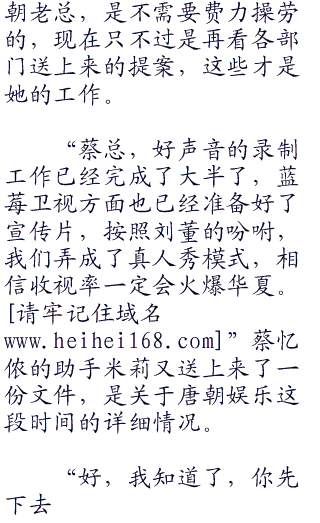 朝老总，是不需要费力操劳
的，现在只不过是再看各部
门送上来的提案，这些才是
她的工作。
“蔡总，好声音的录制
工作已经完成了大半了，蓝
莓卫视方面也已经准备好了
宣传片，按照刘董的吩咐，
我们弄成了真人秀模式，相
信收视率一定会火爆华夏。
[请牢记住域名
www.heihei168.com]”蔡忆
侬的助手米莉又送上来了一
份文件，是关于唐朝娱乐这
段时间的详细情况。
“好，我知道了，你先
下去